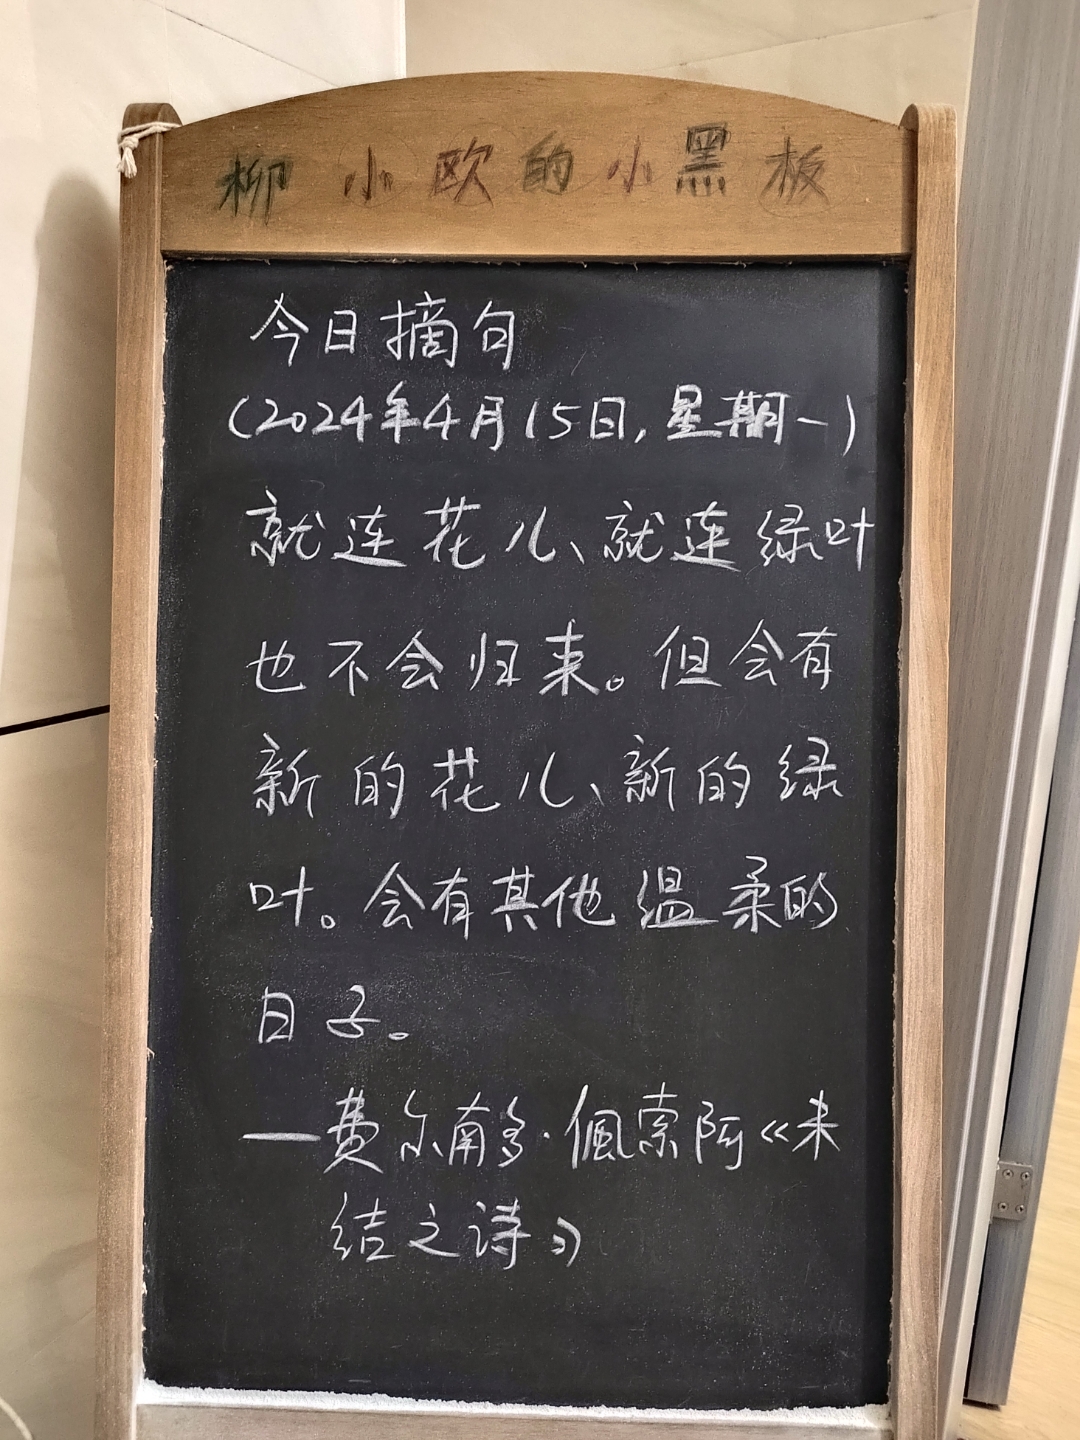 柳小欧的小黑板
今日摘句
(2024年4月15日,星期一)
就连花儿、就连绿叶
也不会归来。但会有
新的花儿、新的绿
叶。会有其他温柔的
日子。
—费尔南多·佩索阿《未
结之诗》